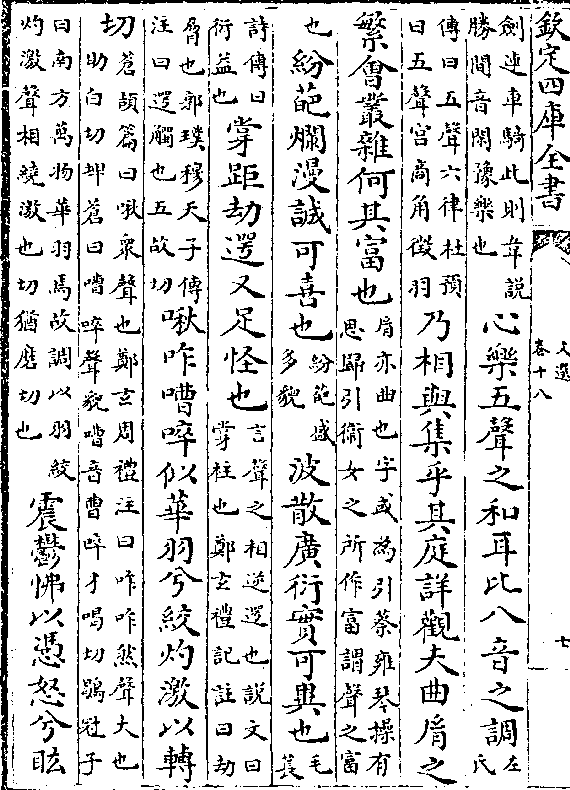 欽定四庫全書
文選
卷十八
七
劍連車騎此則韋說
勝間音閑豫樂也
心樂五聲之和耳比八音之調
左氏
傳曰五聲六律杜預
曰五聲宫商角徵羽
乃相與集乎其庭詳觀夫曲𦙍之
繁會叢雜何其富也
𦙍亦曲也字或為引蔡雍琴操有
思歸引衛女之所作富謂聲之富
也
紛葩爛漫誠可喜也
紛葩盛
多貌
波散廣衍實可異也
毛萇
詩傳曰
衍益也
掌距劫遌又足怪也
言聲之相逆遌也説文曰
掌柱也鄭玄禮記註曰劫
脅也郭璞穆天子傳
注曰遌觸也五故切
啾咋嘈啐似華羽兮絞灼激以轉
切
蒼頡篇曰啾衆聲也鄭玄周禮注曰咋咋然聲大也
助白切埤蒼曰嘈啐聲貌嘈音曹啐才喝切鶡冠子
曰南方萬物華羽焉故調以羽絞
灼激聲相繞激也切猶磨切也
震鬱怫以憑怒兮眩